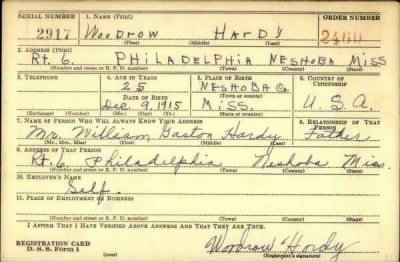 SERIAL NUMBER 1. NAME (Print) ORDER NUMBER
2917 Woodrow Hardy 2460
(First) (Middle) (Last)
2. ADDRESS (Print)
Rt. 6. PHILADELPHIA NESHOBA MISS
(Number and street or R. F. D. number) (Town) (County) (State)
3. TELEPHONE 4. AGE IN YEARS 5. PLACE OF BIRTH 6. COUNTRY OF CITIZENSHIP
25 NESHOBA Co.
DATE OF BIRTH (Town or county)
Dec. 9, 1915 MISS. U.S.A.
(Exchange) (Number) (Mo.) (Day) (Yr.) (State or country)
7. NAME OF PERSON WHO WILL ALWAYS KNOW YOUR ADDRESS 8. RELATIONSHIP OF THAT PERSON
Mr. William Gaston Hardy Father
(Mr., Mrs., Miss) (First) (Middle) (Last)
9. ADDRESS OF THAT PERSON
Rt. 6. Philadelphia Neshoba Miss.
(Number and street or R. F. D. number) (Town) (County) (State)
10. EMPLOYER'S NAME
Self.
11. PLACE OF EMPLOYMENT OR BUSINESS
(Number and street or R. F. D. number) (Town) (County) (State)
I AFFIRM THAT I HAVE VERIFIED ABOVE ANSWERS AND THAT THEY ARE TRUE.
REGISTRATION CARD
D. S. S. Form 1 Woodrow Hardy
(Registrant's signature)